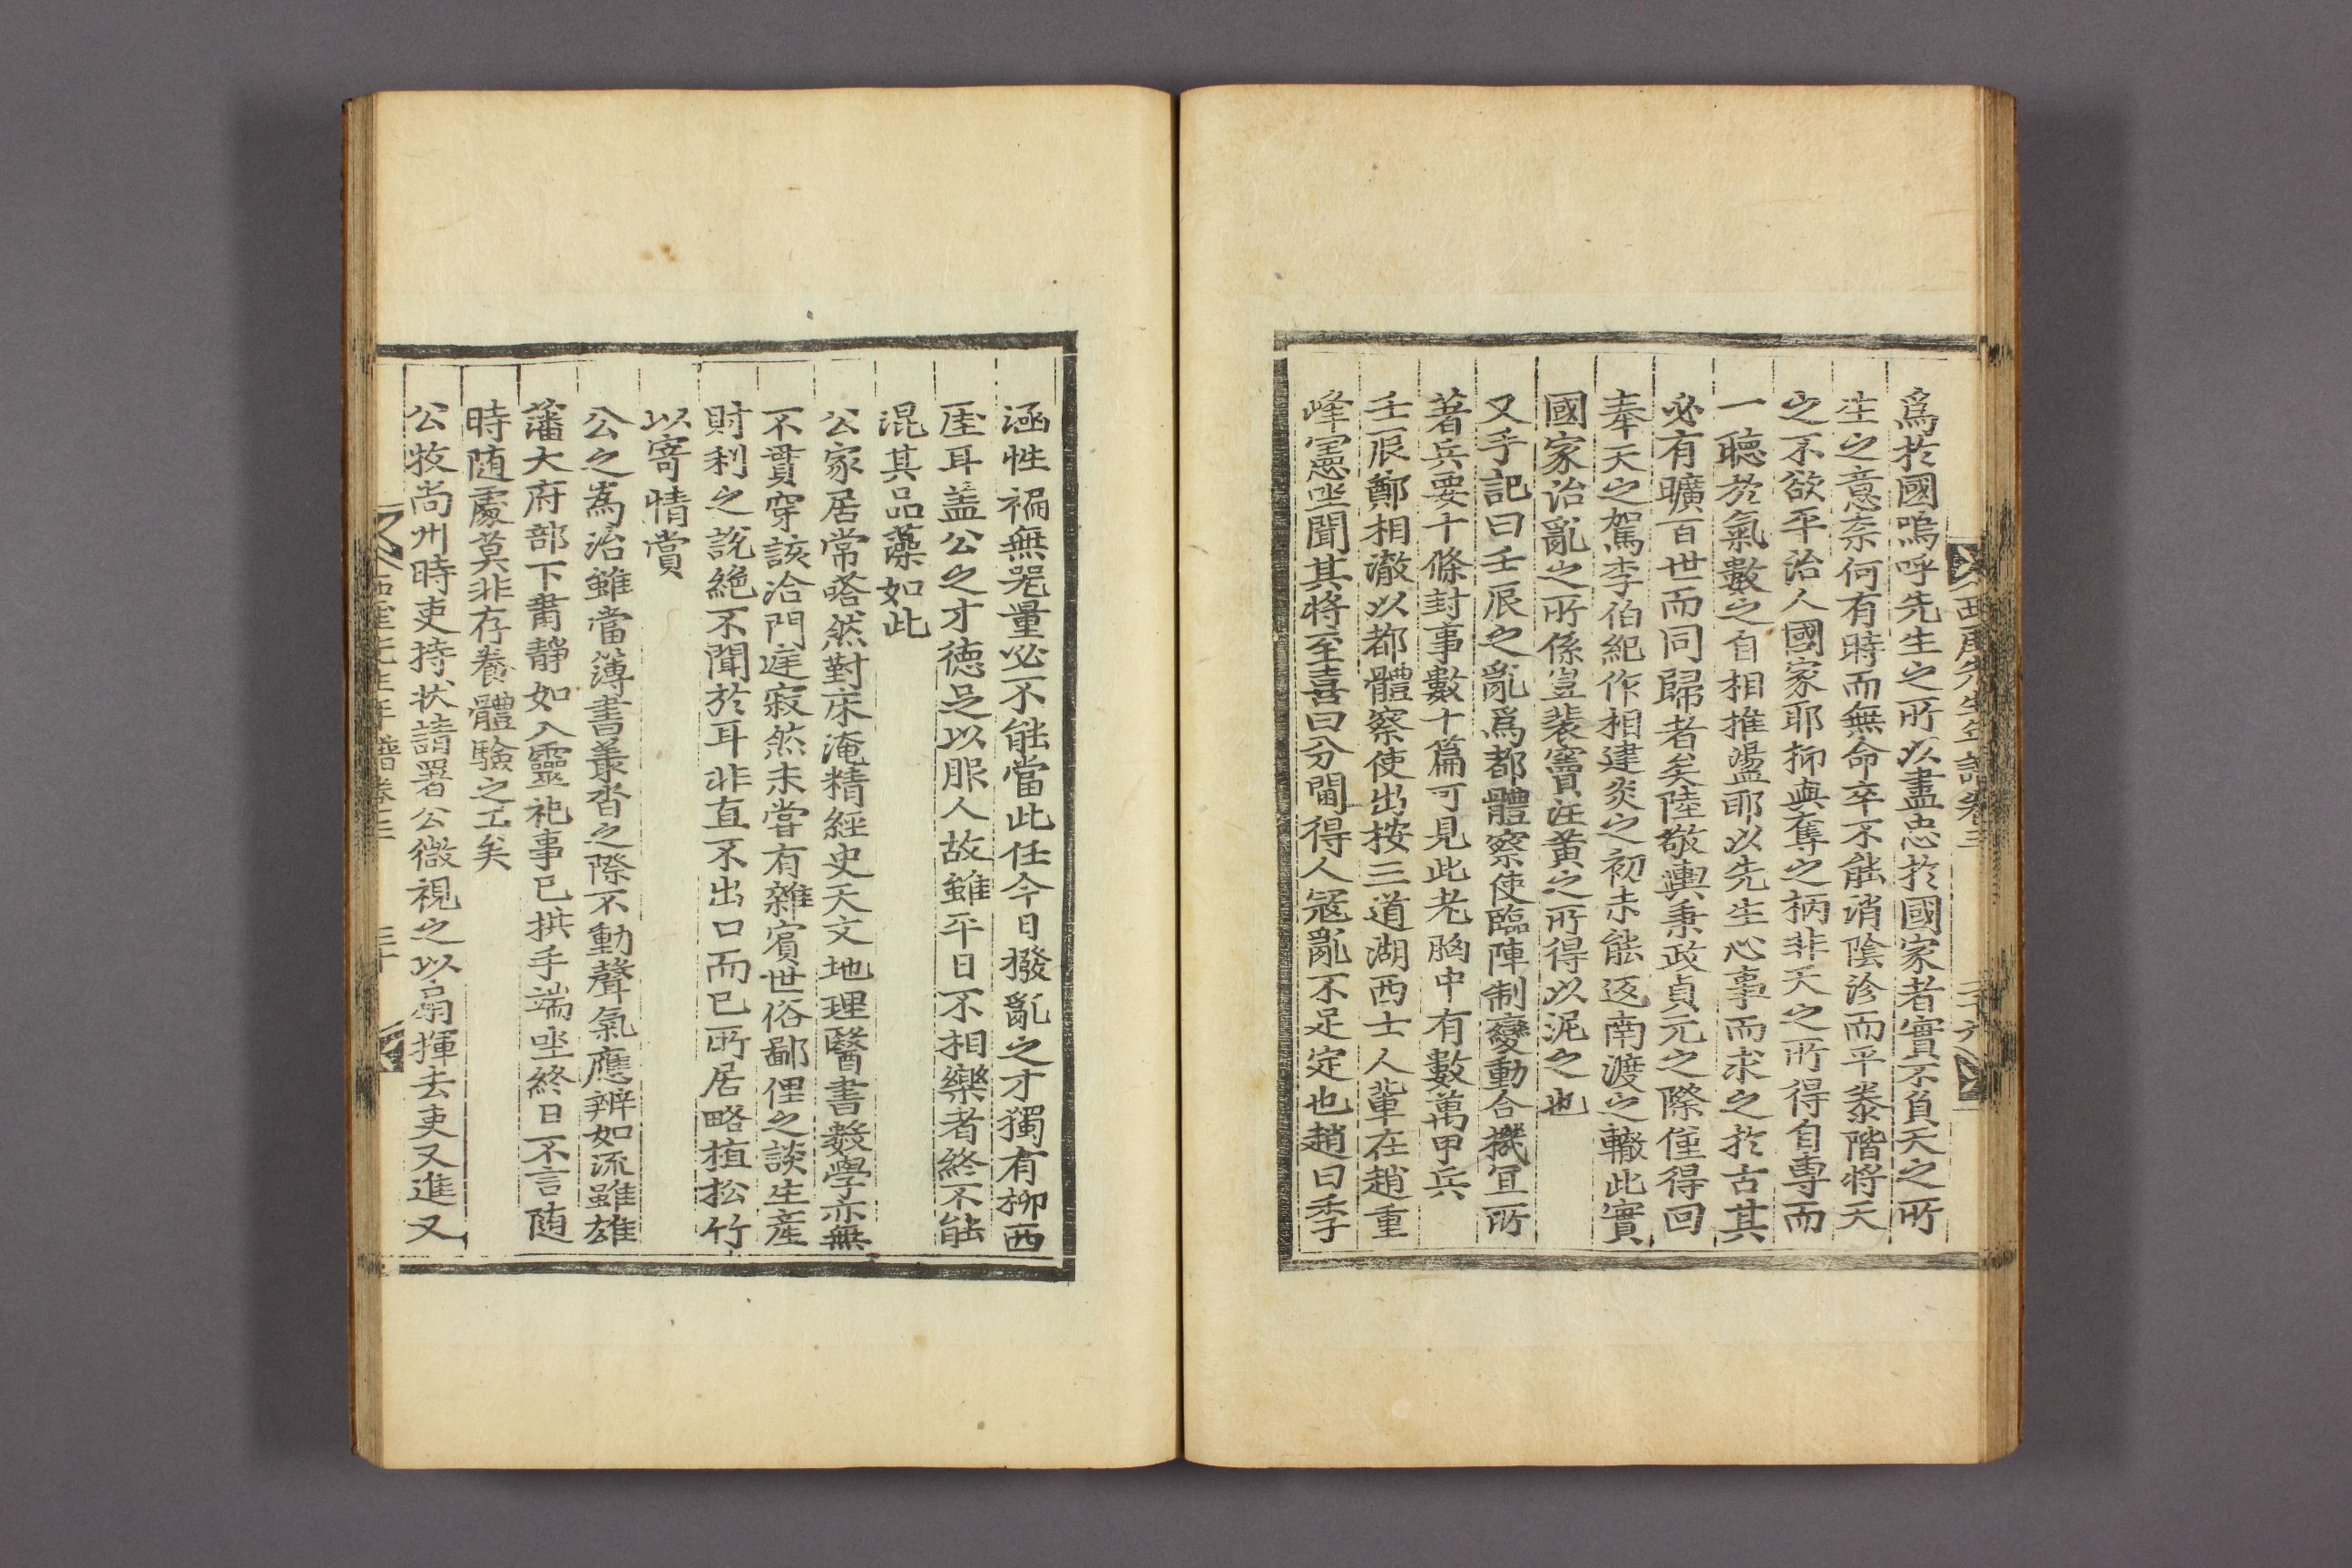 西厓先生年譜卷三 二十六
爲於國嗚呼先生之所以盡忠於國家者實不負天之所
生之意奈何有時而無命卒不能消陰沴而平泰階將天
之不欲平治人國家耶抑與奪之柄非天之所得自專而
一聽於氣數之自相推盪耶以先生心事而求之於古其
必有曠百世而同歸者矣陸敬輿秉政貞元之際僅得回
奉天之駕李伯紀作相建炎之初未能返南渡之轍此實
國家治亂之所係豈裴竇汪黃之所得以泥之也
又手記曰壬辰之亂爲都體察使臨陣制變動合機宜所
著兵要十條封事數十篇可見此老胸中有數萬甲兵
壬辰鄭相澈以都體察使出按三道湖西士人輩在趙重
峰憲坐聞其將至喜曰分閫得人寇亂不足定也趙曰季
涵性褊無器量必不能當此任今日撥亂之才獨有柳西
厓耳盖公之才德足以服人故雖平日不相樂者終不能
混其品藻如此
公家居常嗒然對床淹精經史天文地理醫書數學亦無
不貫穿該洽門庭寂然未嘗有雜賓世俗鄙俚之談生産
財利之說絶不聞於耳非直不出口而已所居略植松竹
以寄情賞
公之爲治雖當簿書叢沓之際不動聲氣應辨如流雖雄
藩大府部下肅靜如入靈祀事已拱手端坐終日不言随
時随處莫非存養體驗之工矣
公牧尚州時吏持状請署公微視之以扇揮去吏又進又
西厓先生年譜卷三 三十